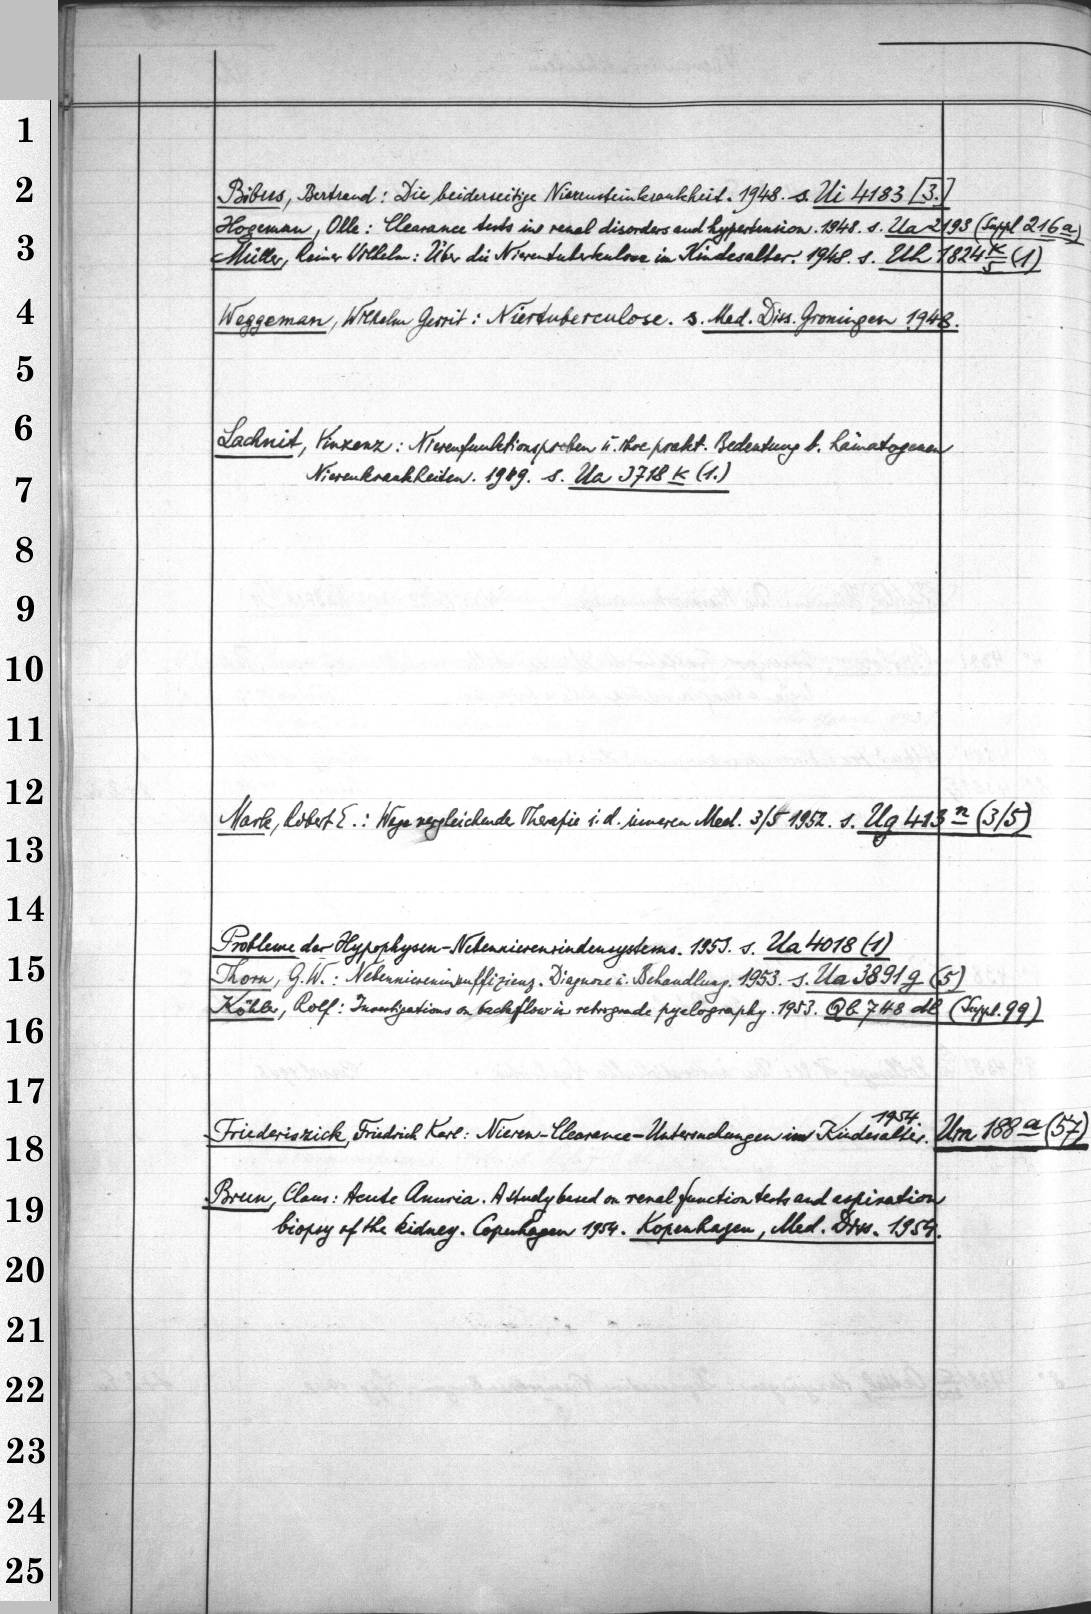 1
2
3
4
5
6
7
8
9
10
11
12
13
14
15
16
17
18
19
20
21
22
23
24
25
Bibus, Bertrand: Die beiderseitige Nierensteinkrankheit. 1948. s. Ui 4183 [3.]
Hogeman, Olle: Clearance tests in renal disorders and hypertension. 1948. s. Ua 2193 (Suppl 216a)
Müller, Reiner Wilhelm: Über die Nierentuberkulose im Kindesalter. 1948. s. Uh 1824 K/5 (1)
Weggeman, Wilhelm Gerrit: Niertuberculose. s. Med. Diss. Groningen 1948.
Lachnit, Vinzenz: Nierenfunktionsproben u. ihre prakt. Bedeutung b. hämatogenen
Nierenkrankheiten. 1949. s. Ua 3718 k (1.)
Mark, Robert E.: Wege vergleichende Therapie i. d. inneren Med. 3/5 1952. s. Ug 413 n (3/5)
Probleme der Hypophysen-Nebennierenrindensystems. 1953. s. Ua 4018 (1)
Thorn, G. W.: Nebenniereninsuffizienz. Diagnose u. Behandlung. 1953. s. Ua 3891 g (5)
Köhler, Rolf: Investigations on backflow in retrograde pyelography. 1953. Qb 748 db (Suppl. 99)
Friederiszick, Friedrich Karl: Nieren-Clearance-Untersuchungen im Kindesalter. 1954. Um 188 a (57)
Brun, Claus: Acute Anuria. A study based on renal function tests and aspiration
biopsy of the kidney. Copenhagen 1954. Kopenhagen, Med. Diss. 1954.